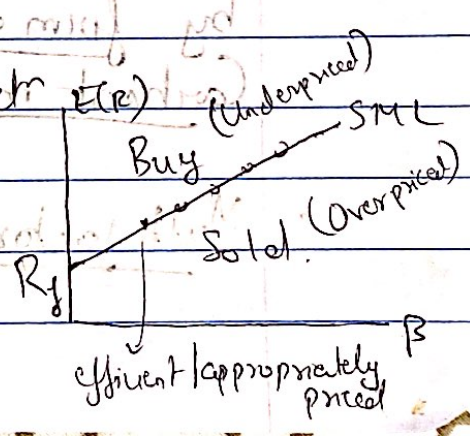 E(R)
(Underpriced)
SML
Buy
(Overpriced)
Sold.
Rf
β
efficient/appropriately
priced